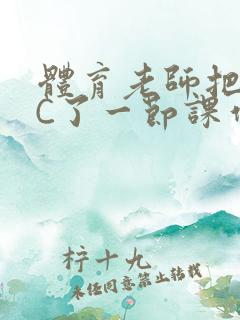 體育老師把
C了一節課
柠十九
未经同意禁止转载